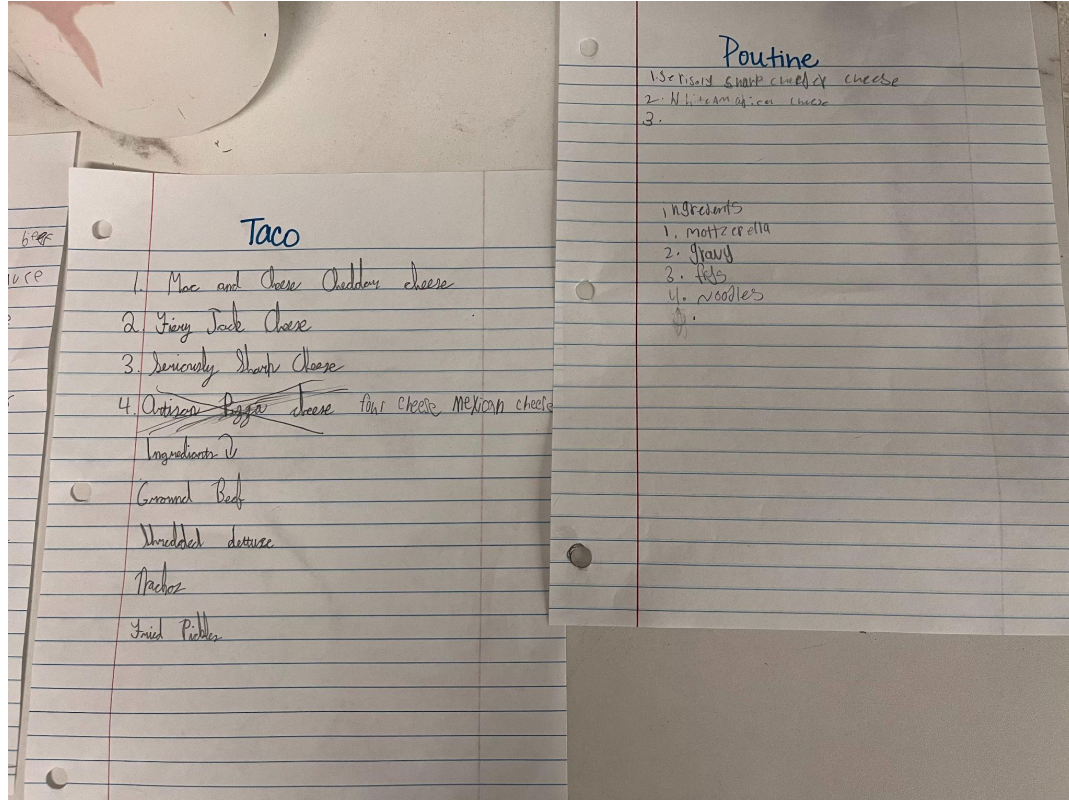 beef
Taco
1. Mac and Cheese Cheddar cheese
2. Fiery Jack Cheese
3. Seriously Sharp Cheese
4. Artisan Pizza cheese four cheese Mexican cheese
Ingredients
Ground Beef
Shredded lettuze
Nachoz
Fried Pickles
Poutine
1. sharp cheese
2. cheese
3.
ingredents
1. mottzerella
2. gravy
3.
4. Noodles